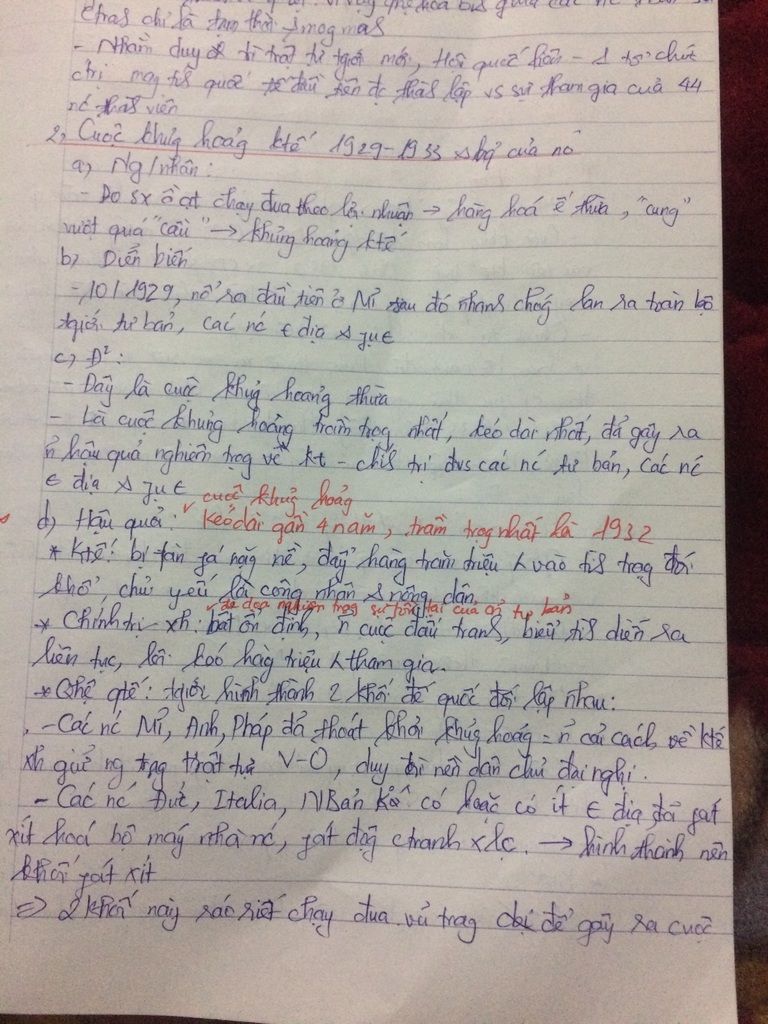 chas chỉ là tạm thời & mog mas
- Nhằm duy trì trật tự tgiới mới, Hội quốc liên - 1 tổ chức
ctrị mag tís quốc tế đầu tiên đc thàs lập vs sự tham gia của 44
nc thàs viên
2, Cuộc khủg hoảg ktế 1929-1933 & hq của nó
a, Ng/nhân:
- Do sx ồ ạt chạy đua theo lợi nhuận → hàng hoá ế thừa, "cung"
vượt quá "cầu" → khủng hoảng ktế
b, Diễn biến
- 10/1929, nổ ra đầu tiên ở Mĩ sau đó nhans chóg lan ra toàn bộ
tgiới tư bản, các nc € địa & fụ€
c, Đ²:
- Đây là cuộc khủg hoảng thừa
- Là cuộc khủng hoảng trầm trọg nhất, kéo dài nhất, đã gây ra
n̄ hậu quả nghiêm trọg về kt - chís trị đvs các nc tư bản, các nc
€ địa & fụ€
cuộc khủg hoảg
d, Hậu quả: kéo dài gần 4 năm, trầm trọg nhất là 1932
* Ktế: bị tàn fá nặg nề, đẩy hàng trăm triệu λ vào tìs trạg đói
khổ, chủ yếu là công nhân & nông dân
đe dọa nghiêm trọg sự tồn tại của cn̄ tư bản
* Chính trị - xh: bất ổn định, n̄ cuộc đấu trans, biểu tìs diễn ra
liên tục, lôi kéo hàg triệu λ tham gia.
* Qhệ qtế: tgiới hình thành 2 khối đế quốc đối lập nhau:
- Các nc Mĩ, Anh, Pháp đã thoát khỏi khủg hoảg = n̄ cải cách về ktế
xh giữ ng trạg trật tự V-O, duy trì nền dân chủ đại nghị.
- Các nc Đức, Italia, NBản kô có hoặc có ít € địa đã fát
xít hoá bộ máy nhà nc, fát độg ctranh xlc. → hình thành nên
khối fát xít
=> 2 khối này ráo riết chạy đua vũ trag để gây ra cuộc